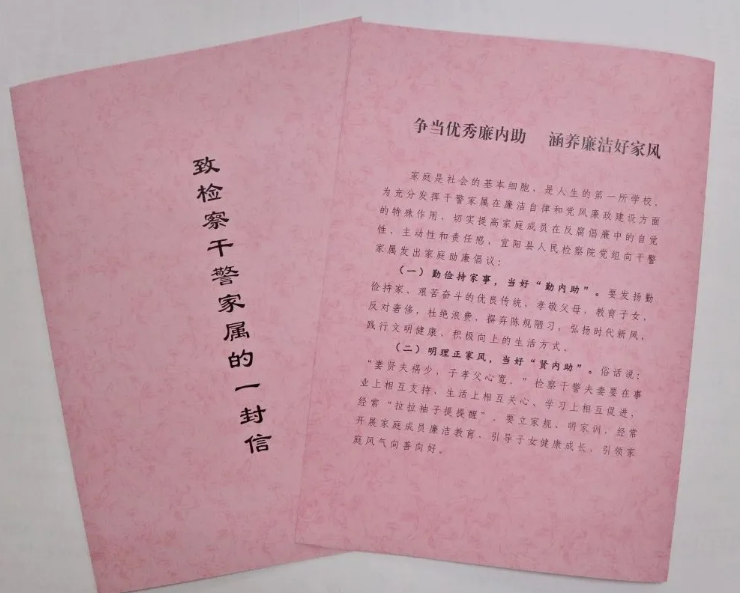 致检察干警家属的一封信
争当优秀廉内助 涵养廉洁好家风
家庭是社会的基本细胞，是人生的第一所学校。
为充分发挥干警家属在廉洁自律和党风廉政建设方面
的特殊作用，切实提高家庭成员在反腐倡廉中的自觉
性、主动性和责任感，宜阳县人民检察院党组向干警
家属发出家庭助廉倡议：
（一）勤俭持家事，当好“勤内助”。要发扬勤
俭持家、艰苦奋斗的优良传统，孝敬父母，教育子女，
反对奢侈，杜绝浪费，摒弃陈规陋习，弘扬时代新风，
践行文明健康、积极向上的生活方式。
（二）明理正家风，当好“贤内助”。俗话说：
“妻贤夫祸少，子孝父心宽。”检察干警夫妻要在事
业上相互支持、生活上相互关心、学习上相互促进，
经常“拉拉袖子提提醒”。要立家规，明家训，经常
开展家庭成员廉洁教育，引导子女健康成长，引领家
庭风气向善向好。